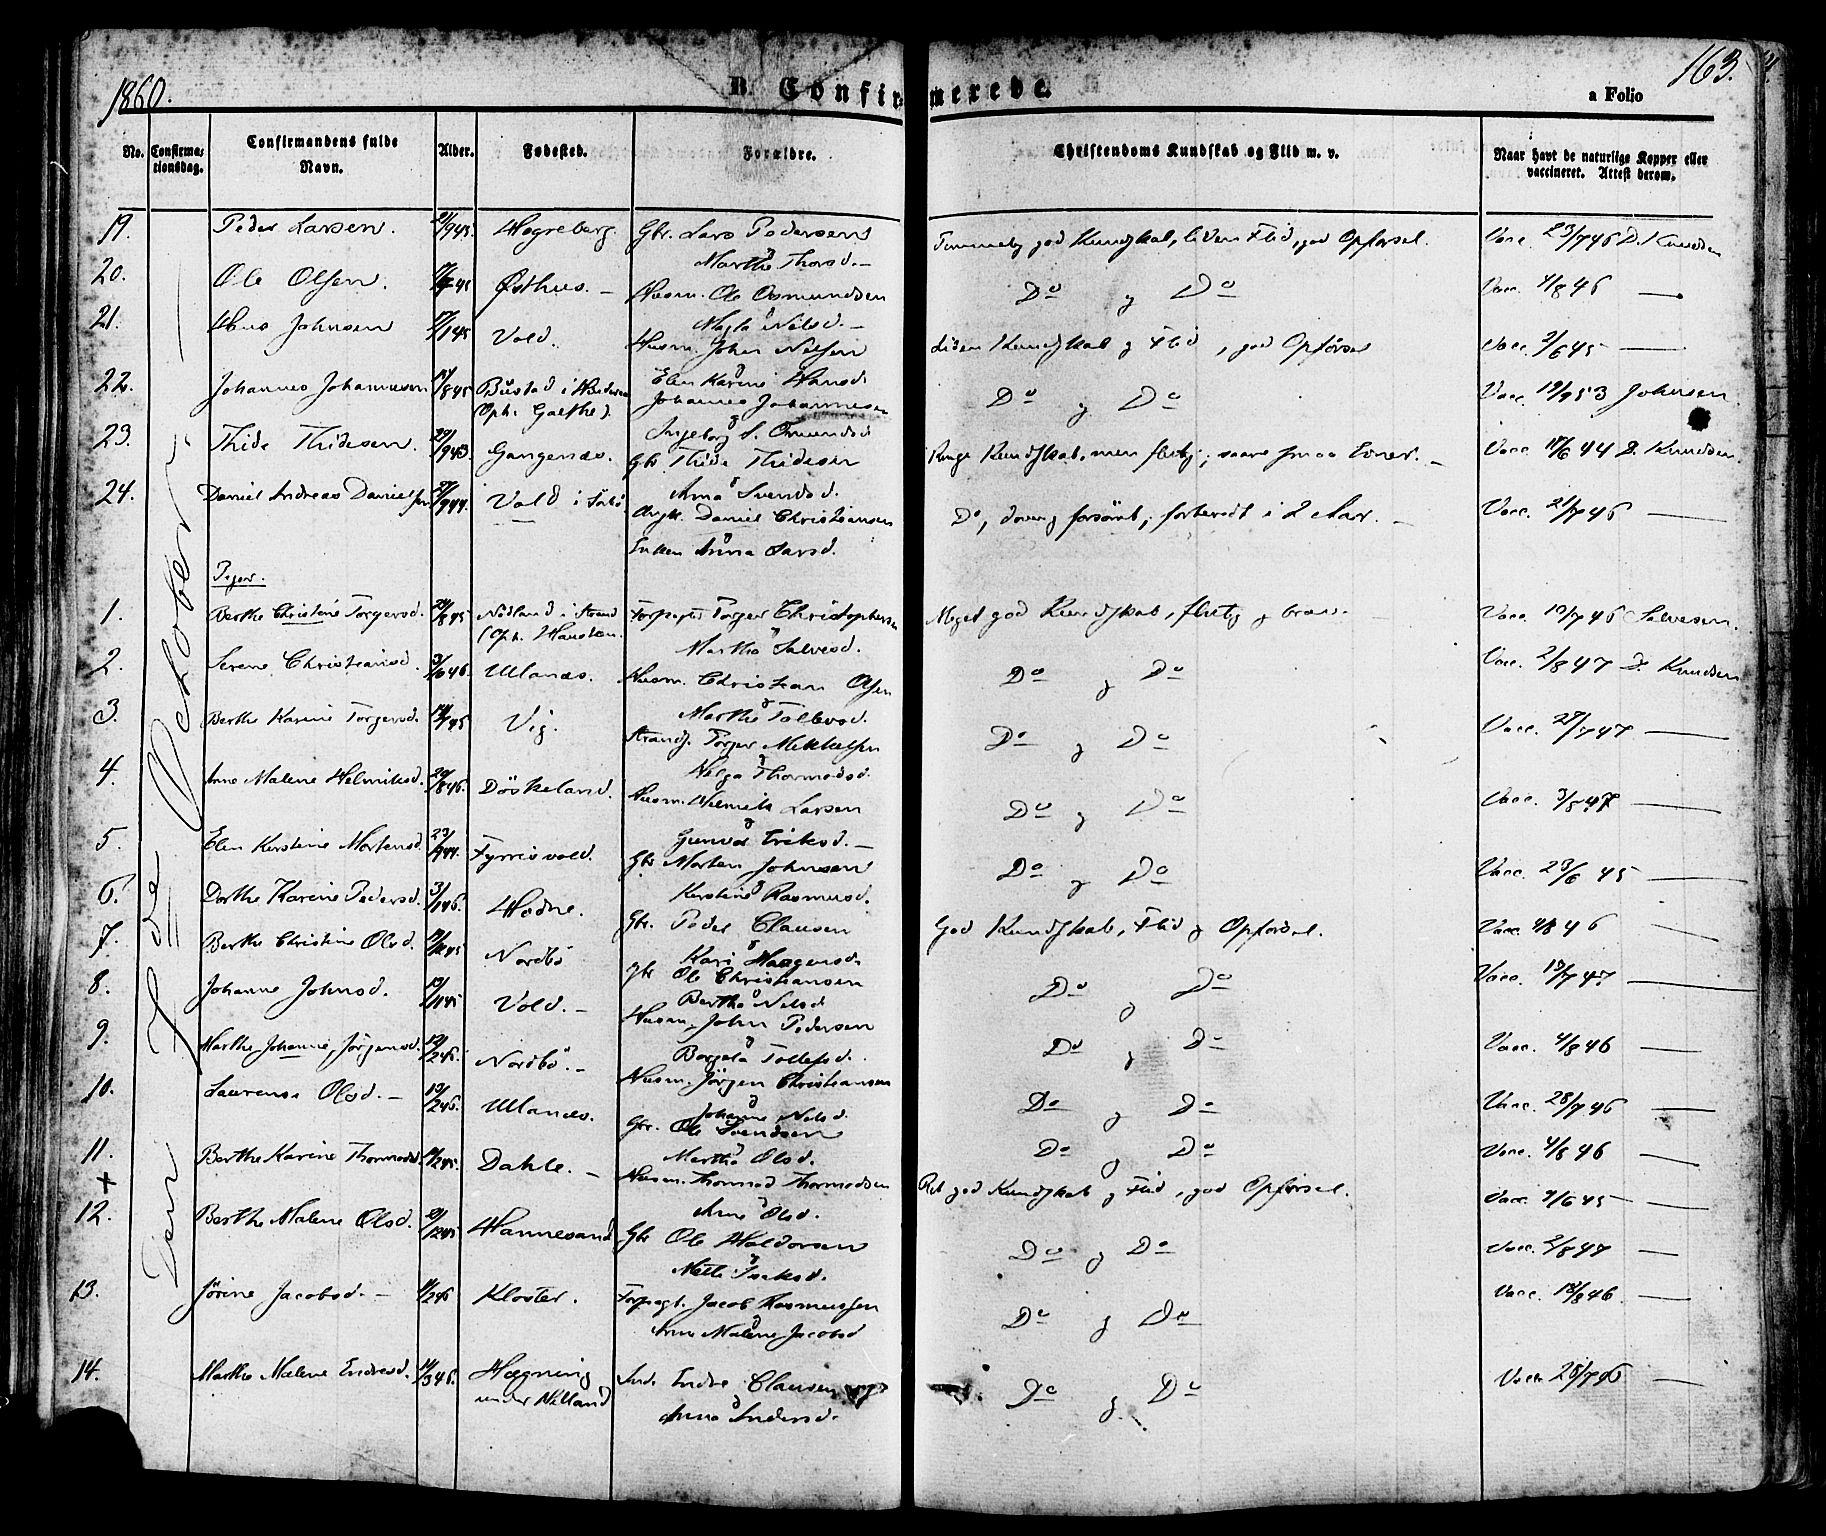 1860.
B. Confirmerede.
a Folio
163.
No.
Confirmationsdag.
Confirmandens fulde Navn.
Alder.
Fødested.
Forældre.
Christendoms Kundskab og Flid m. v.
Naar havt de naturlige Kopper eller vaccineret. Attest derom.
Den 7de October
19. Peder Larsen. 21/9 45 Hogreberg. Gbr. Lars Pedersen Temmelig god Kundskab, liden Flid, god Opførsel. Vacc. 23/7 46 D. Knudsen
Marthe Thorsd. –
20. Ole Olsen. Østhus. – Husm. Ole Osmundsen Do og Do Vacc. 4/8 46 —
Nilsd. –
21. Hans Johnsen 17/1 45 Vold. Husm. John Nilsen Liden Kundskab og Flid, god Opførsel Vacc. 3/6 45 —
Elen Karine Hansd.
22. Johannes Johannesen 17/8 45 Bustad i (Oph. Gaethe). Johannes Johannesen Do og Do Vacc. 19/9 53 Johnsen.
Ingeborg S. Omundsd
23. Thide Thidesen. 29/9 43 Gangenæs. Gbr Thide Thidesen Ringe Kundskab, men flittig; svare smaa Evner. – Vacc. 18/6 44 D. Knudsen.
Anna Svendsd.
24. Daniel Andreas Danielsen 27/9 44. Vold i Daniel Christiansen Do, doven, forsømt; forberedt i 2 Aar. – Vacc. 21/7 46 —
Enken Anna Larsd.
Piger.
1. Berthe Christine Torgersd. 28/8 45 Nødland i Strand (Oph. Torger Christophersen Meget god Kundskab, flittig og brav. – Vacc. 19/7 46 Salvesen.
Martha Salvesd.
2. Serene Christiansd. Ulanæs. Husm. Christian Olsen Do og Do Vacc. 2/8 47 D. Knudsen
Marthe Tollevsd.
3. Berthe Karine Torgersd. Vig. Strands. Torger Mikkelsen Do og Do Vacc. 27/7 47 —
Helga Thormodsd.
4. Anne Malene Helmiksd. 20/8 46. Døskeland. Husm. Helmik Larsen Do og Do Vacc. 3/8 47 —
Gunvor Eriksd. –
5. Elen Kirstine Mortensd. Fyrrisvold. Gbr Morten Johnsen Do og Do Vacc. 23/6 45 —
Kirstine Rasmusd.
6. Dorthe Karine Pedersd. 3/1 46. Hodne. Gbr. Peder Clausen God Kundskab, Flid og Opførsel. Vacc. 4/8 46 —
Kari Haagensd.
7. Berthe Christine Olsd. Nordbø Gbr Ole Christiansen Do og Do Vacc. 19/7 47 —
Bertha Nilsd
8. Johanne Johnsd. Vold. – Husm. John Pedersen Do og Do Vacc. 4/8 46 —
Borgela Tollefsd.
9. Marthe Johanne Jörgensd. 19/2 46. Nordbø. – Husm. Jörgen Christiansen Do og Do Vacc. 28/7 46 —
Johanne Nilsd.
10. Laurense Olsd. – 19/2 46. Ulanæs. Gbr. Ole Svendsen Do og Do Vacc. 4/8 46 —
Martha Olsd.
11. Berthe Karine Thormodsd. Dahle. – Husm. Thormod Thormodsen Ret god Kundskab og Flid, god Opførsel. Vacc. 4/6 45 —
Anne Olsd.
+
12. Berthe Malene Olsd. 21/12 45 Hannesand Gbr Ole Haldorsen Do og Do Vacc. 2/8 47 —
Mette
13. Jörine Jacobsd. – Kloster. Forpagt. Jacob Rasmussen Do og Do Vacc. 18/8 46. —
Anne Malene Jacobsd
14. Marthe Malene Endresd. 14/3 46. Hægning under Endre Clausen Do og Do Vacc. 28/7 46 —
Anna Andersd.